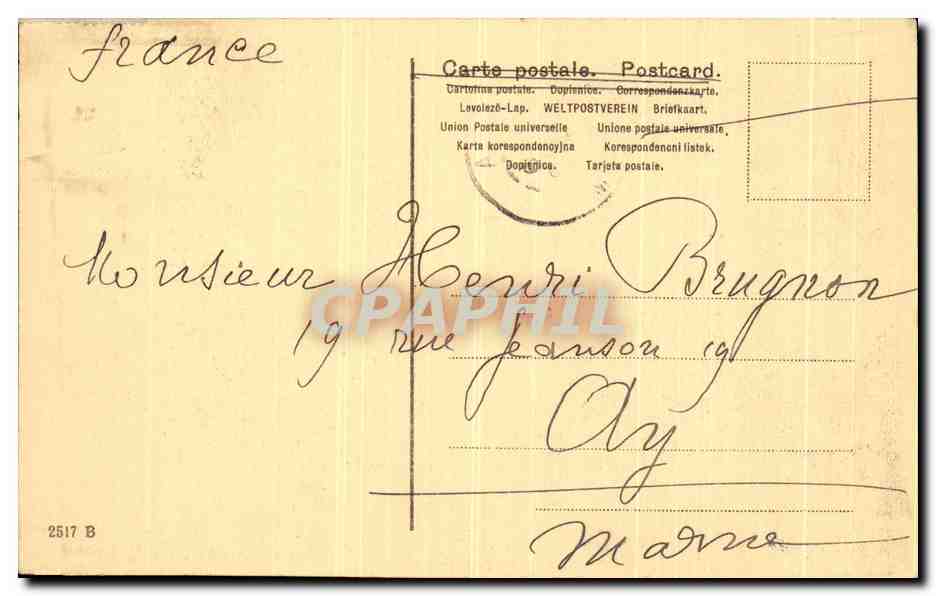 france
Carte postale. Postcard.
Cartolina postale. Dopisnice. Correspondenzkarte.
Levelező-Lap. WELTPOSTVEREIN Briefkaart.
Union Postale universelle Unione postale universale.
Karta korespondencyjna Korespondencni listek.
Dopisnica. Tarjeta postale.
Monsieur Henri Brugnon
CPAPHIL
19 rue Jeanson 19
Aÿ
Marne
2517 B